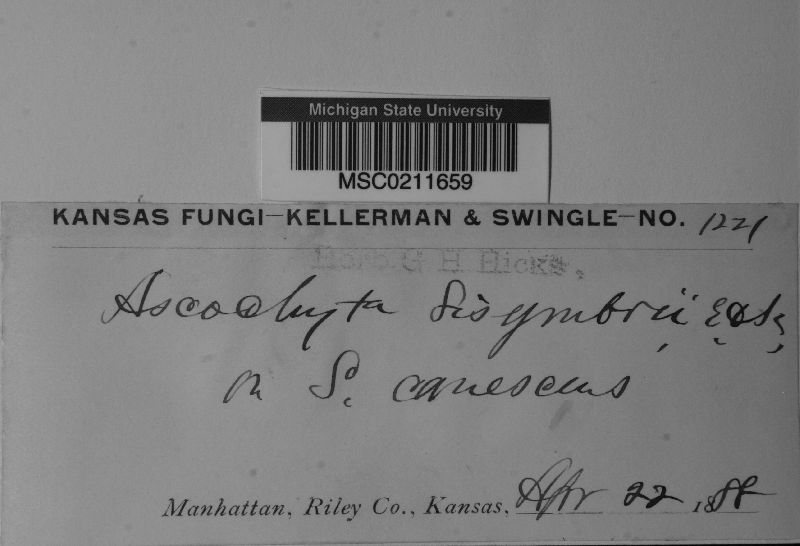 Michigan State University
MSC0211659
KANSAS FUNGI—KELLERMAN & SWINGLE—NO. 1221
Herb G H Hicks,
Ascochyta Sisymbrii E. & K.,
on S. canescens
Manhattan, Riley Co., Kansas, Apr 22 1888